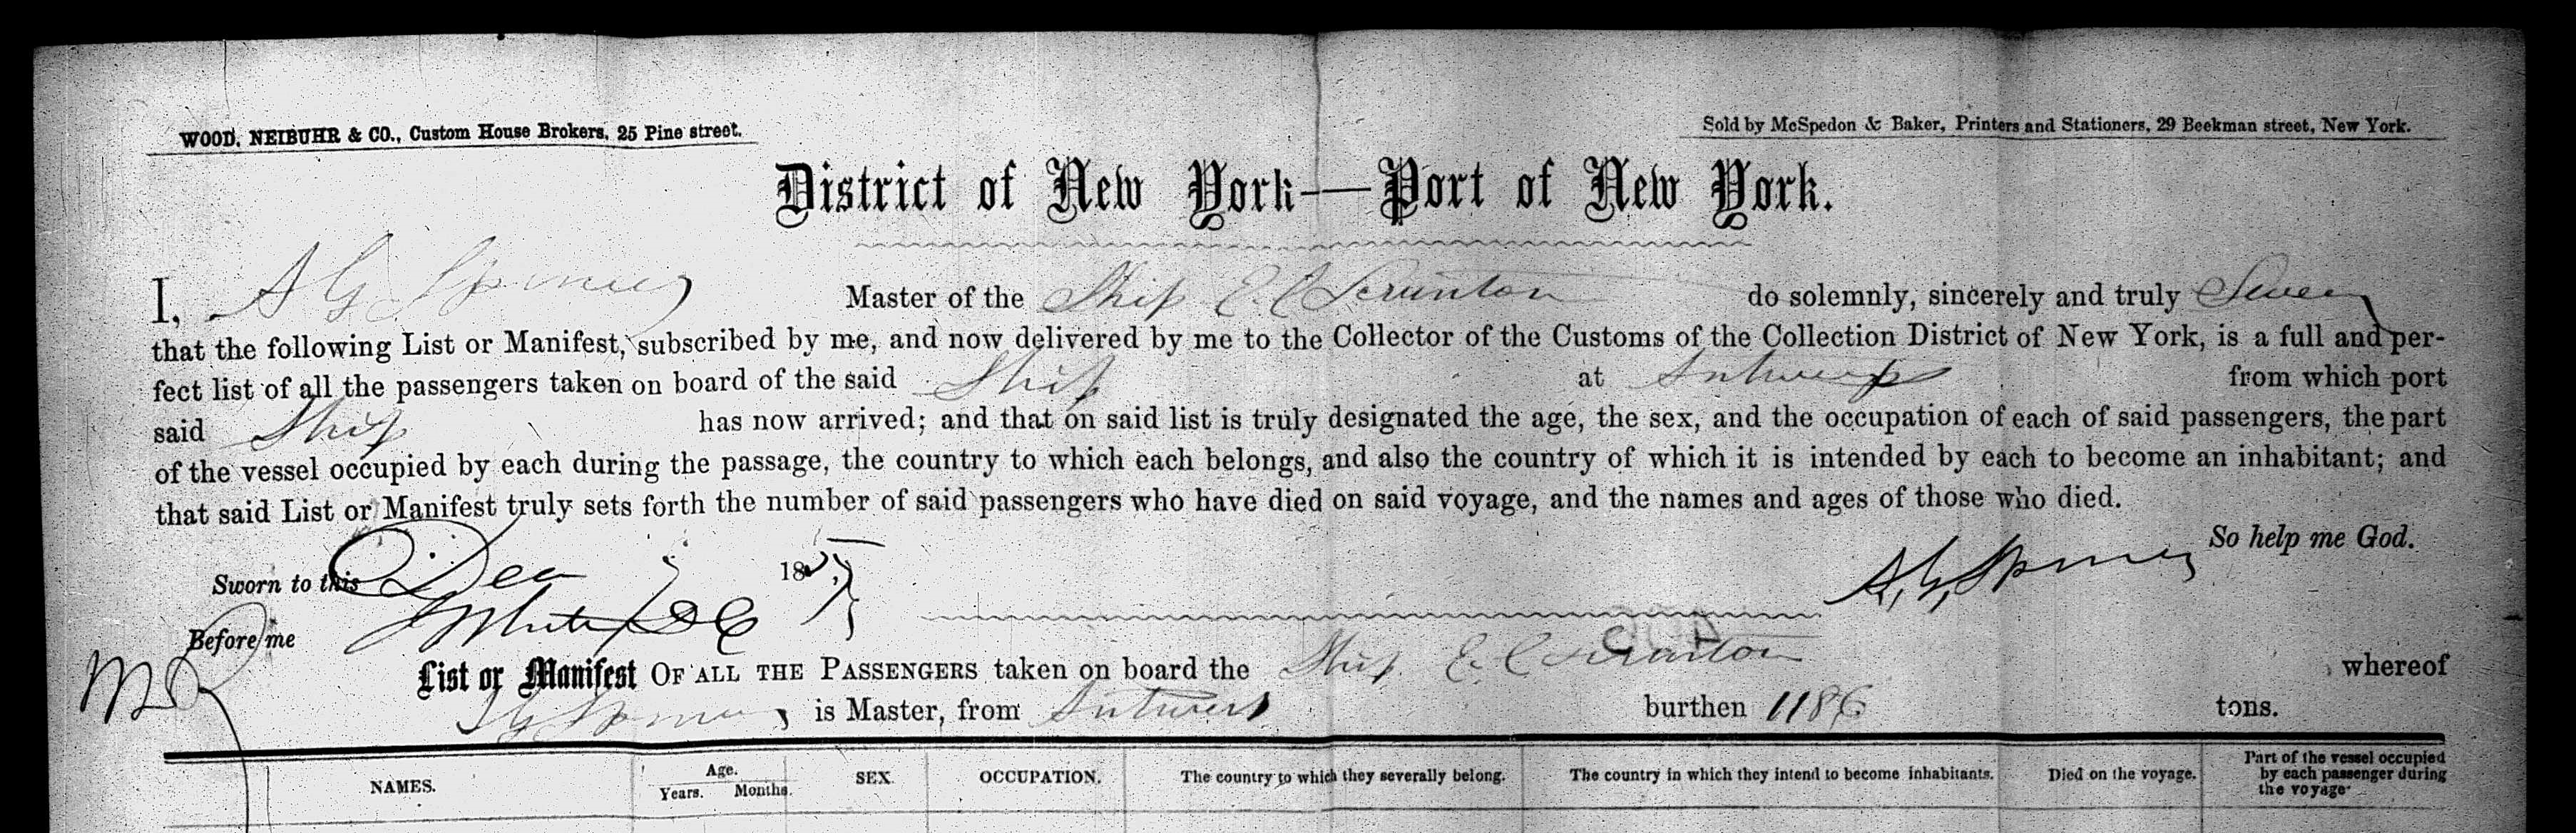 WOOD, NEIBUHR & CO., Custom House Brokers, 25 Pine street.
Sold by McSpedon & Baker, Printers and Stationers, 29 Beekman street, New York.
District of New York—Port of New York.
I, A G Spencer Master of the Ship E. C Scranton do solemnly, sincerely and truly Swear
that the following List or Manifest, subscribed by me, and now delivered by me to the Collector of the Customs of the Collection District of New York, is a full and per-
fect list of all the passengers taken on board of the said Ship at Antwerp from which port
said Ship has now arrived; and that on said list is truly designated the age, the sex, and the occupation of each of said passengers, the part
of the vessel occupied by each during the passage, the country to which each belongs, and also the country of which it is intended by each to become an inhabitant; and
that said List or Manifest truly sets forth the number of said passengers who have died on said voyage, and the names and ages of those who died.
So help me God.
Sworn to this Dec 185 A. G. Spencer
Before me
List or Manifest OF ALL THE PASSENGERS taken on board the Ship E. C Scranton whereof
A G Spencer is Master, from Antwerp burthen 1186 tons.
NAMES.
Age.
Years. Months.
SEX.
OCCUPATION.
The country to which they severally belong.
The country in which they intend to become inhabitants.
Died on the voyage.
Part of the vessel occupied
by each passenger during
the voyage